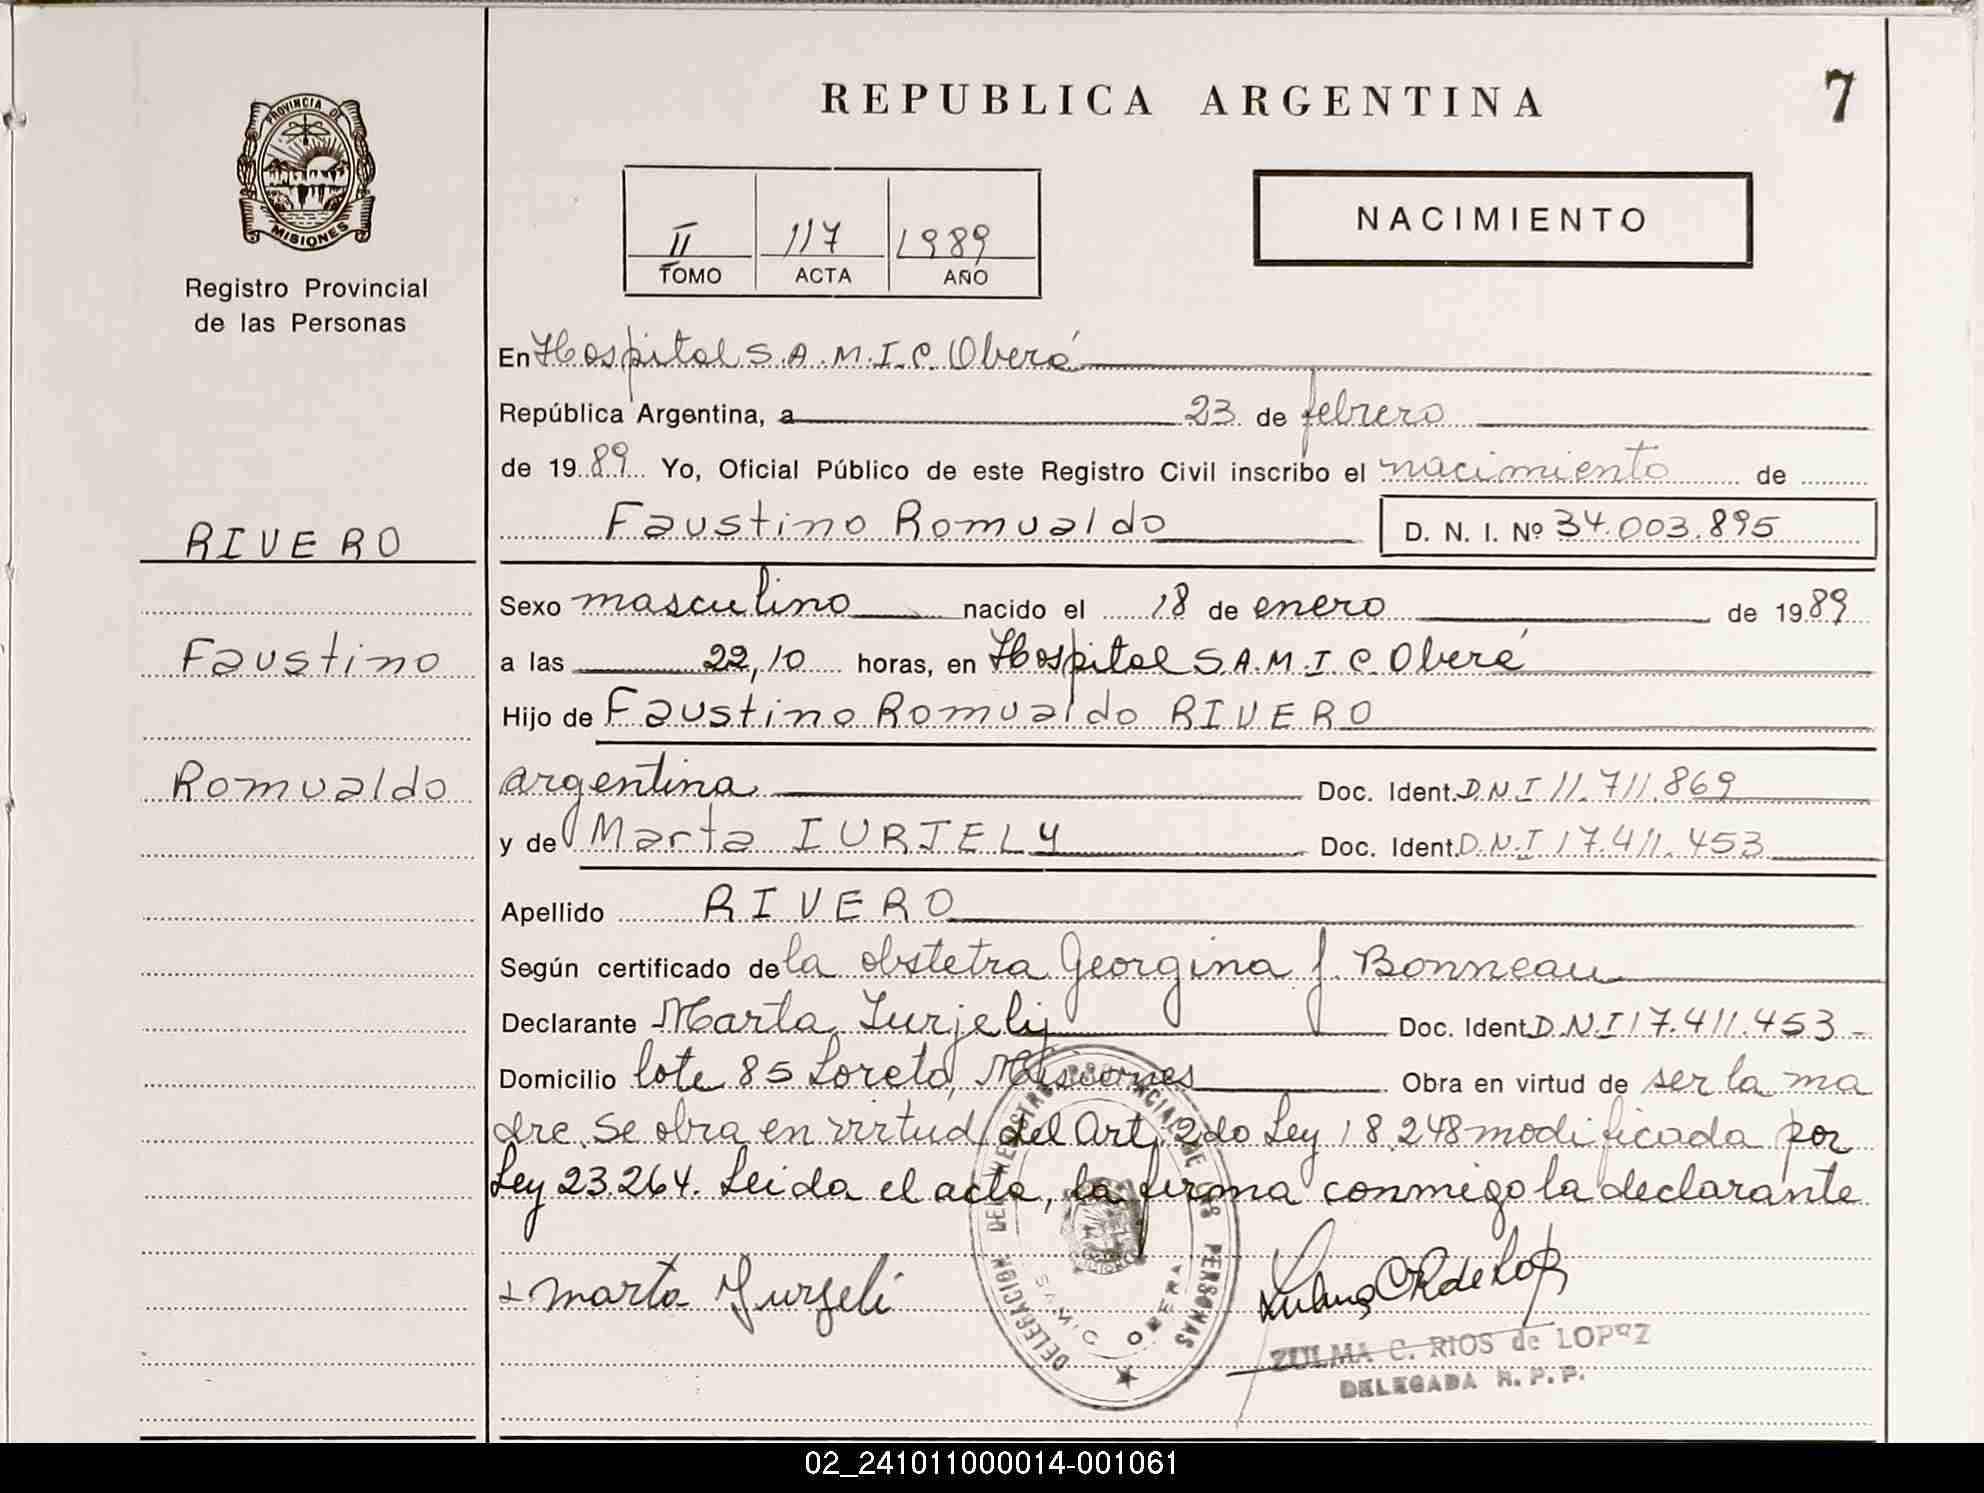 REPUBLICA ARGENTINA
7
PROVINCIA DE
MISIONES
Registro Provincial
de las Personas
II 117 1989
TOMO ACTA AÑO
NACIMIENTO
En Hospital S.A.M.I.C. Oberá
República Argentina, a 23 de febrero
de 1989 Yo, Oficial Público de este Registro Civil inscribo el nacimiento de
Faustino Romualdo D. N. I. Nº 34.003.895
RIVERO
Faustino
Romualdo
Sexo masculino nacido el 18 de enero de 1989
a las 22,10 horas, en Hospital S.A.M.I.C. Oberá
Hijo de Faustino Romualdo RIVERO
argentina Doc. Ident. D.N.I 11.711.869
y de Marta IURJELY Doc. Ident. D.N.I 17.411.453
Apellido RIVERO
Según certificado de la obstetra Georgina J. Bonneau
Declarante Marta Iurjely Doc. Ident D.N.I 17.411.453-
Domicilio lote 85 Loreto, Misiones Obra en virtud de ser la ma
dre. Se obra en virtud del Art. 2do Ley 18.248 modificada por
Ley 23.264. Leida el acta, la firma conmigo la declarante
DELEGACION DEL REGISTRO PROVINCIAL DE LAS PERSONAS
SAMIC OBERA
MISIONES
+ Marta Yurjeli
Zulma C R de Lopez
ZULMA C. RIOS de LOPEZ
DELEGADA R. P. P.
02_241011000014-001061